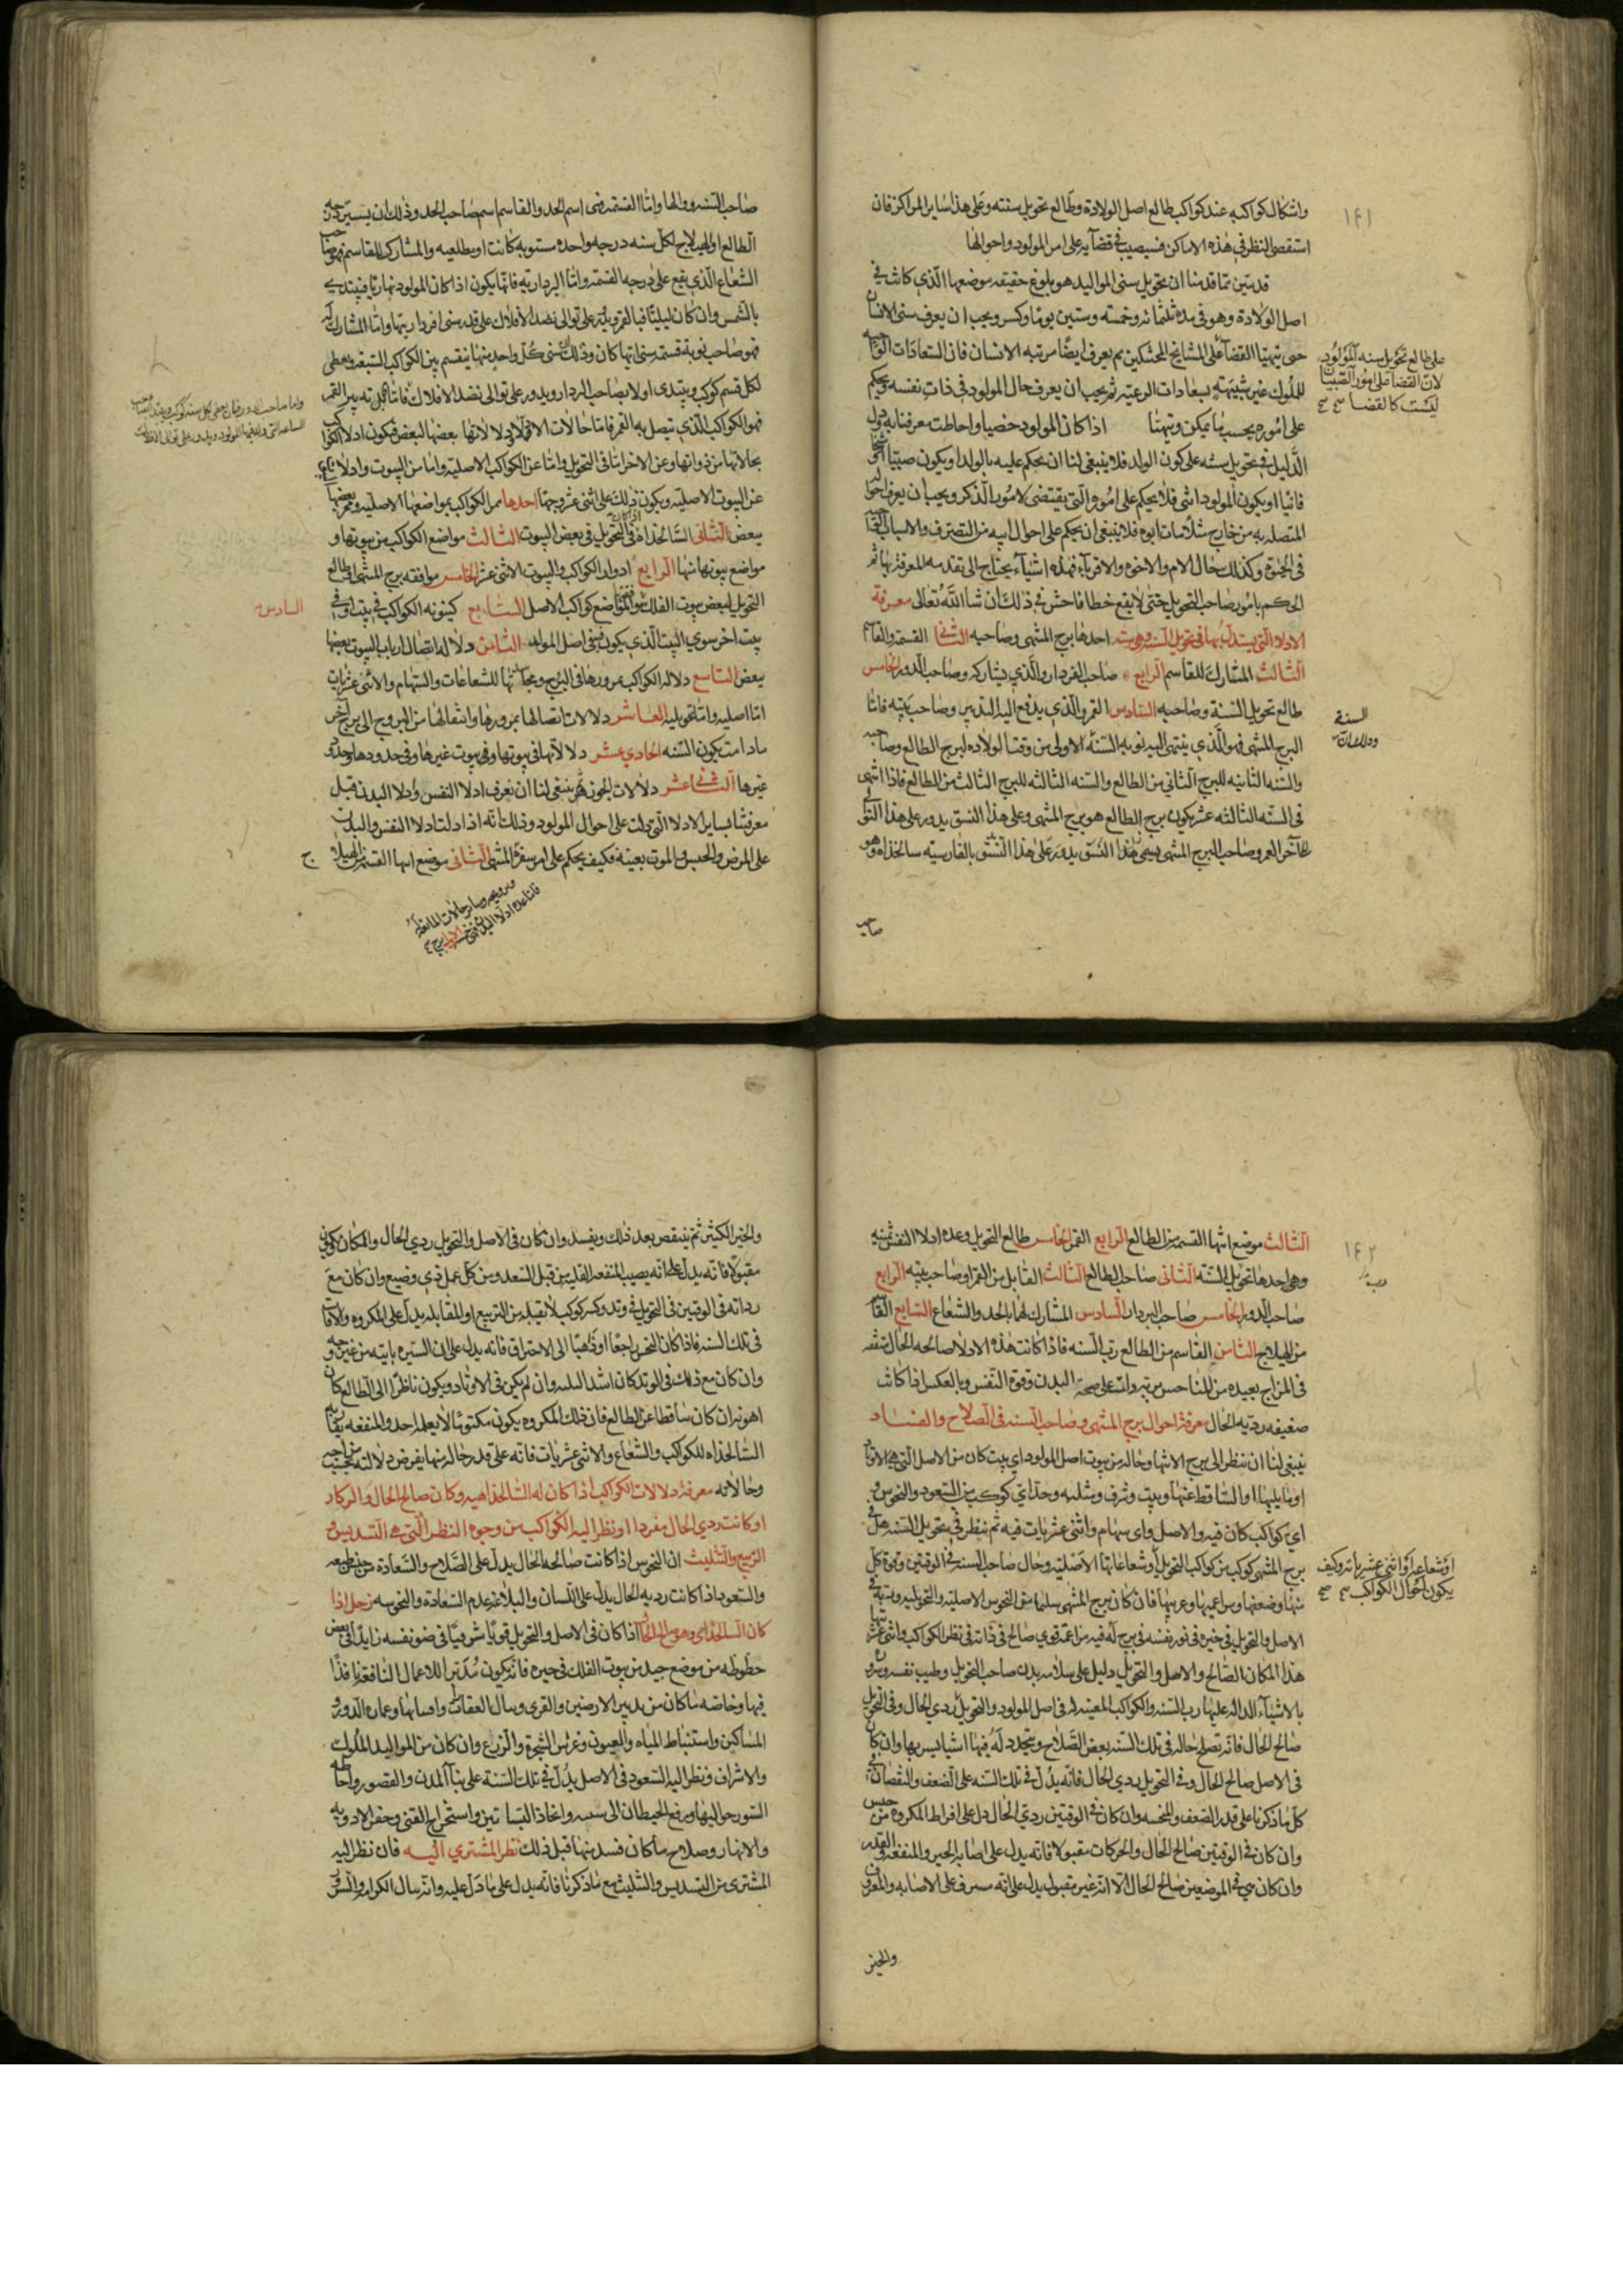 واشكال كواكبه عند كواكب طالع اصل الولادة وطالع تحويل سنته وعلى هذا ساير المراكز فان
استقصى النظر في هذه الاماكن فسيصيب في قضآيه على امر المولود واحوالها
قد تبين مما قدمنا ان تحويل سنى المواليد هو بلوغ حقيقه موضعها الذي كانت في
اصل الولادة وهو في مدة ثلثمائه وخمسة وستين يوما وكسر ويجب ان يعرف سنى الانسان
حتى يتهيا القضآ على المشايخ المحتنكين ثم يعرف ايضا مرتبه الانسان فان السعادات
للملوك غير شبيهة بسعادات الرعيه ثم يجب ان يعرف حال المولود في ذات نفسه ويحكم
على اموره بحسب ما يمكن ويتهيا اذا كان المولود خصيا واحاطت معرفتنا به
الدليل في تحويل سنته على كون الولد فلا ينبغي لنا ان يحكم عليه بالولد او يكون صبيا او
فانيا او يكون المولود انثى فلا يحكم على اموره التي يقتضى لامور الذكر ويجب ان يعرف
المتصله به من خارج مثلا مات ابوه فلا ينبغي ان يحكم على احوال ابيه من التصرف والاسباب
في الحيوة وكذلك حال الام والاخوه والاقربآء فهذه اشيآء يحتاج الى تقدمه المعرفة بها ثم
الحكم بامور صاحب التحويل حتى لا يقع خطا فاحش في ذلك ان شا الله تعالى معرفة
الادلا التي يستدل بها في تحويل السنه وهي سته احدها برج المنتهى وصاحبه الثاني القسمة والقاسم
الثالث المشارك للقاسم الرابع صاحب الفردار والذي يشاركه وصاحب الدور الخامس
طالع تحويل السنة وصاحبه السادس القمر والذي يدفع اليه التدبير وصاحب بيته فاما
البرج المنتهى فهو الذي ينتهى اليه نوبه السنه الاولى من وقت الولاده لبرج الطالع وصاحبه
والسنه الثانيه للبرج الثاني من الطالع والسنه الثالثه للبرج الثالث من الطالع فاذا انتهى
في السنه الثالثه عشر يكون برج الطالع هو برج المنتهى وعلى هذا النسق يدور على هذا
آخر العمر وصاحب البرج المنتهى يسمى هذا النسق يدور على هذا النسق بالفارسيه سالخذاه وهو
صاحب
على طالع تحويل سنه المولود
لان القضآ على امور الصبيان
ليست كالقضا
السنة
١٤١
صاحب السنه ووالها واما القسمه فهى اسم الحد والقاسم اسم صاحب الحد وذلك ان يسير درجه
الطالع او الهيلاج لكل سنه درجه واحده مستويه كانت او مطلعيه والمشارك للقاسم فهو صاحب
الشعاع الذي يقع على درجه القسمه واما البردارية فانها يكون اذا كان المولود نهاريا فيبتدى
بالشمس وان كان ليليا فبالقمر على توالى نضد الافلاك على قدر سنى افرداريتها واما المشارك له
فهو صاحب نوبة قسمة سنى ايها كان وذلك ان سنى كل واحد منها ينقسم بين الكواكب السبعه ويعطى
لكل قسم كوكب ويبتدى اولا بصاحب البردار ويدور على توالى نضد الافلاك فاما
فهو الكواكب الذي يتصل به القمر فاما حالات الادلا لانها بعضها البعض فيكون ادلا الكواكب
بحالاتها من ذواتها وعن الاخر اما في التحويل واما عن الكواكب الاصليه واما من البيوت وادلا
عن البيوت الاصليه ويكون ذلك على اثنى عشر وجها احدها ممر الكواكب بمواضعها الاصليه وممر بعضها
ببعض الثاني السالخذاه في التحويل في بعض البيوت الثالث مواضع الكواكب من بيوتها و
مواضع بيوتها منها الرابع ادوار الكواكب والبيوت الاثنى عشر الخامس موافقه برج المنتهى او طالع
التحويل لبعض بيوت الفلك ومواضع كواكب الاصل السابع كينونه الكواكب في بيت او في
بيت اخر سوى البيت الذي يكون في اصل المولد الثامن دلاله اتصال ارباب البيوت بعضها
ببعض التاسع دلاله الكواكب بمرورها في البرج ومجاسدتها للشعاعات والسهام والاثنى عشريات
اما اصليه واما تحويليه العاشر دلالات اتصالها بمرورها وانتقالها من البروج الى برج آخر
ما دامت يكون السنه الحادي عشر دلالاتها في بيوتها وفي بيوت غيرها وفي حدودها وحدود
غيرها الثاني عشر دلالات ينبغي لنا ان نعرف ادلا النفس وادلا البدن قبل
معرفتنا بساير الادلا التي دلت على احوال المولود وذلك انه اذا دلتا دلا النفس والبدن
على المرض والحبس والموت بعينه فكيف يحكم على امر سفره المنتهى الثاني موضع انتها القسمه من الهيلاج
السادس
الثالث موضع انتها القسمه من الطالع الرابع القمر الخامس طالع التحويل وعدد ادلا النفس ثمنيه
وهي احدها تحويل السنه الثاني صاحب الطالع الثالث القابل من القمر او صاحب بيته الرابع
صاحب الدور الخامس صاحب البردار السادس المشارك لهما بالحد والشعاع السابع القاسم
من الهيلاج الثامن القاسم من الطالع رب السنه فاذا كانت هذه الادلا صالحه الحال متفقه
في المزاج بعيده من المناحس سريره دلت على صحة البدن وقوة النفس وبالعكس اذا كانت
ضعيفه رديه الحال معرفة احوال برج المنتهى وصاحب السنه في الصلاح والفساد
ينبغي لنا ان ننظر الى برج الانتها وحاله من بيوت اصل المولود اي بيت كان من الاصل التي هي الاوتاد
او ما يليها او الساقط عنها وبيت وشرف ومثلثه وحد اي كوكب من السعود والنحوس و
اي كواكب كان فيه والاصل واي سهام واثنى عشريات فيه ثم ننظر في تحويل السنه هل في
برج المنتهى كوكب من كواكب التحويل او شعاعاتها الاصليه وحال صاحب السنه في الوقتين وقوة كل
منها وضعفها ومزاعمتها وغربتها فان كان برج المنتهى سليما من النحوس الاصليه والتحويليه وربه في
الاصل والتحويل في خيره في نور نفسه في برج له فيه مزاعمة قوي صالح في ذاته في نظر الكواكب واثنى عشريتها
هذا المكان الصالح والاصل والتحويل دليل على سلامه بدن صاحب التحويل وطيب نفسه وسروره
بالاشيآء الداله عليها رب السنه والكواكب المعينه له في اصل المولود والتحويل ردي الحال وفي التحويل
صالح الحال فانه تصلح حاله في تلك السنه بعض الصلاح ويتجدد له فيها اشيا يسر بها وان كان
في الاصل صالح الحال وفي التحويل ردي الحال فانه يدل في تلك السنه على الضعف والنقصان في
كل ما ذكرنا على قدر الضعف والمنحسه وان كان في الوقتين ردي الحال دل على افراط المكروه من جنس
وان كان في الوقتين صالح الحال والحركات مقبولا فانه يدل على اصابه الخير والمنفعه
وان كان هي في الموضعين صالح الحال الا انه غير مقبول يدل على انه مسرف على الاصابه والمعروف
والخير
او شعاعه او اثنى عشرياته وكيف
يكون احوال الكواكب
١٤٢
والخير الكثير ثم ينتقص بعد ذلك ويفسد وان كان في الاصل والتحويل ردي الحال والمكان
مقبولا فانه يدل على انه يصيب المنفعه القليله من قبل السعد ومن كل عمل دني وضيع وان كان مع
رداته في الوقتين في التحويل في وتد وكسر كوكب لا يقبله من التربيع او المقابله يدل على المكروه والافات
في تلك السنه فاذا كان النحس راجعا او ذاهبا الى الاحتراق فانه يدل على ان الستيره ياتيه من غير جهة و
وان كان مع ذلك في الوتد كان اشد البليه وان لم يكن في الاوتاد ويكون ناظرا الى الطالع كان
اهون ان كان ساقطا عن الطالع فان ذلك المكروه يكون مكتوما لا يعلمه احد والمنفعه
السالخذاه للكواكب والشعاع والاثنى عشريات فانه على قدر حاله منها يفرض دلالته
وحالاته معرفة دلالات الكواكب اذا كان له السالخذاهيه وكان صالح الحال والمركار
او كانت ردي الحال مفردا او نظر اليه الكواكب من وجوه النظر التي هي التسديس و
التربيع والتثليث ان النحوس اذا كانت صالحه الحال يدل على الصلاح والسعادة من طبعه
والسعود اذا كانت رديه الحال يدل على اللسان والبلا عند عدم السعادة والنحوسه زحل اذا
كان السالخذاى وهو صالح الحال اذا كان في الاصل والتحويل قويا شرقيا في ضو نفسه زايدا في بعض
حظوظه من موضع جيد من بيوت الفلك في حيزه فانه يكون مدبرا للاعمال النافعه نافذا
فيها وخاصه ما كان من تدبير الارضين والقرى وينال العقارات واقسامها وعماره الدور و
المساكن واستنباط المياه والعيون وغرس الشجرة والزرع وان كان من المواليد الملوك
والاشراف ونظر اليه السعود في الاصل يدل في تلك السنة على بنآ المدن والقصور واحاطه
السور حواليها ويرفع الحيطان واتخاذ البساتين واستخراج القنى وحفر الاوديه
والانهار وصلاح ما كان فسد منها قبل ذلك نظر المشتري اليه فان نظر اليه
المشتري من التسديس والتثليث مع ما ذكرنا فانه يدل على ما دل عليه وانه ينال الكرامه والشرف